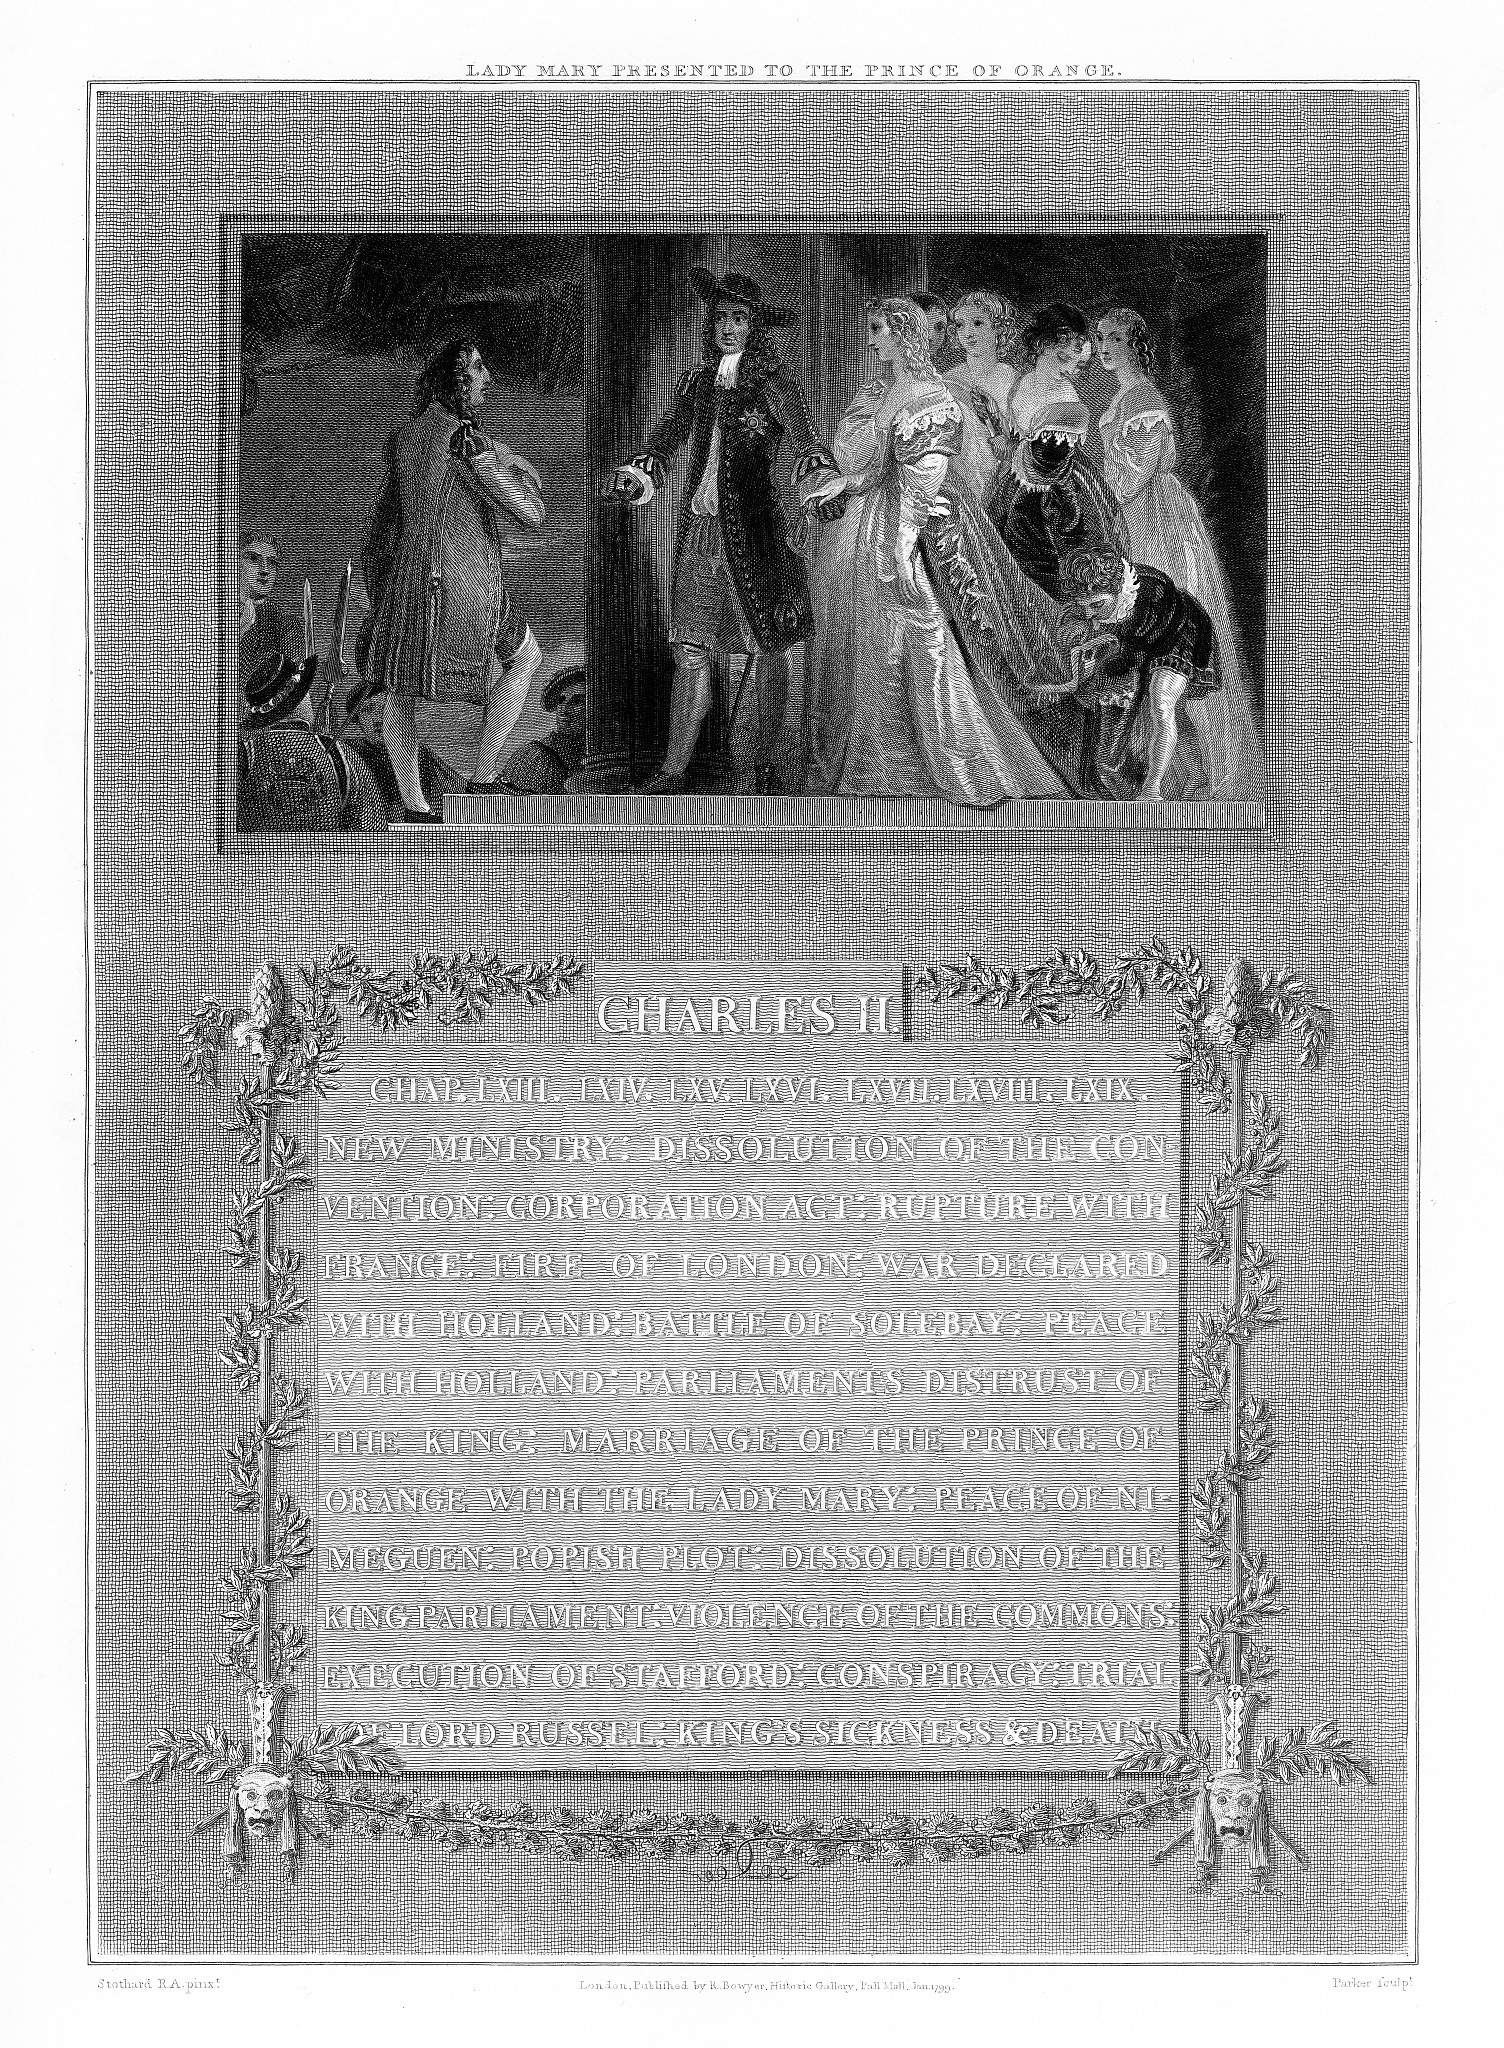 LADY MARY PRESENTED TO THE PRINCE OF ORANGE.
CHARLES II.
CHAP. LXIII. LXIV. LXV. LXVI. LXVII. LXVIII. LXIX.
NEW MINISTRY: DISSOLUTION OF THE CON
VENTION: CORPORATION ACT: RUPTURE WITH
FRANCE: FIRE OF LONDON: WAR DECLARED
WITH HOLLAND: BATTLE OF SOLEBAY: PEACE
WITH HOLLAND: PARLIAMENTS DISTRUST OF
THE KING: MARRIAGE OF THE PRINCE OF
ORANGE WITH THE LADY MARY: PEACE OF NI-
MEGUEN: POPISH PLOT: DISSOLUTION OF THE
KING PARLIAMENT: VIOLENCE OF THE COMMONS:
EXECUTION OF STAFFORD: CONSPIRACY: TRIAL
OF LORD RUSSEL: KING'S SICKNESS & DEATH.
Stothard R.A. pinxt.
London, Publiſhed by R. Bowyer, Hiſtoric Gallery, Pall Mall, Jan. 1799.
Parker ſculpt.